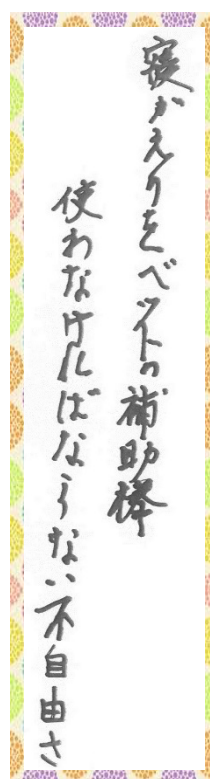 寝かえりをベットの補助棒
使わなければならない不自由さ